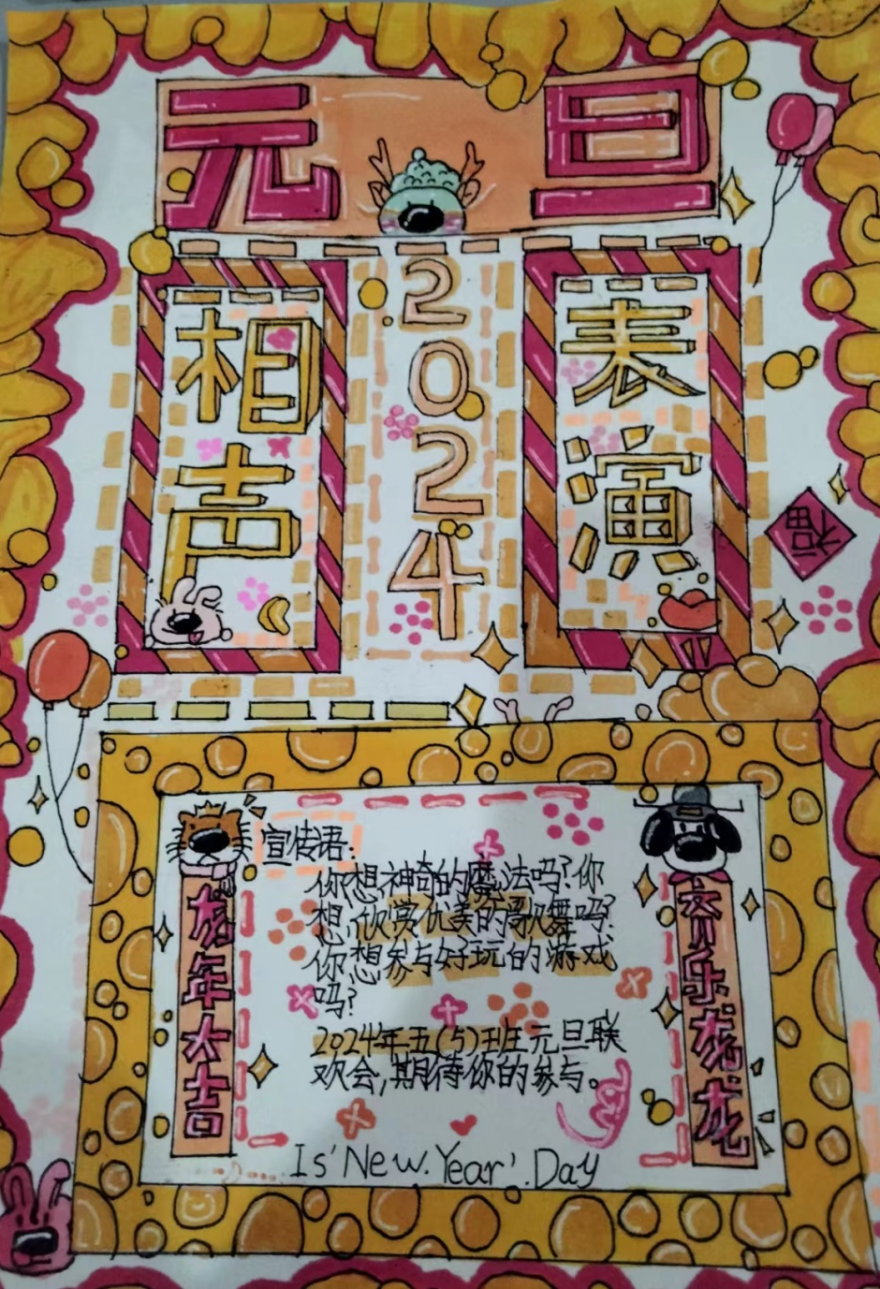 元旦
相声
2024
表演
福
宣传语:
你想神奇的魔法吗?你
想,欣赏优美的歌舞吗?
你想参与好玩的游戏
吗?
2024年五(5)班元旦联
欢会,期待你的参与。
Is' New. Year'. Day
龙年大吉
齐乐龙龙